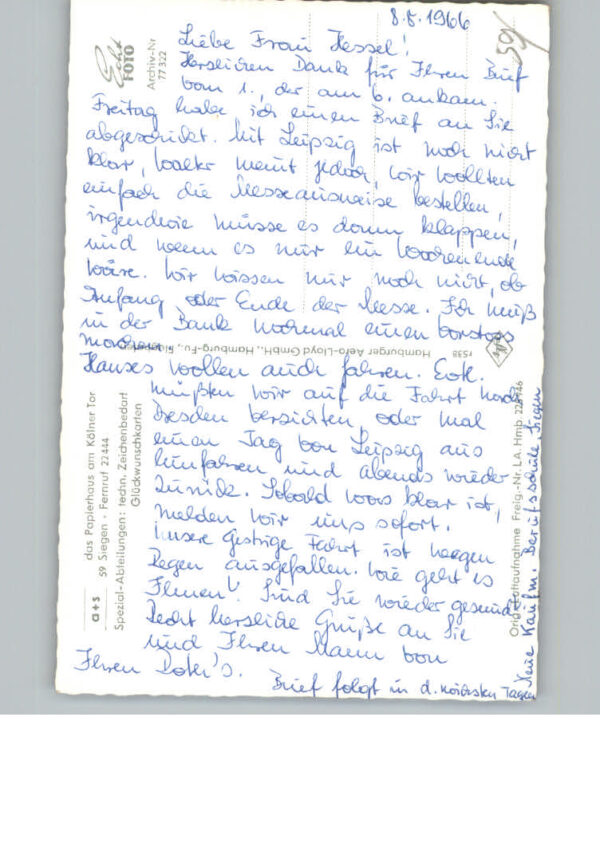 8.8.1966
59/
Liebe Frau Hessel!
Herzlichen Dank für Ihren Brief
vom 1., der am 6. ankam.
Freitag habe ich einen Brief an Sie
abgeschickt. Mit Leipzig ist noch nicht
klar, Walter meint jedoch, wir wollten
einfach die Messeausweise bestellen,
irgendwie müsse es dann klappen,
und wenn es nur ein Wochenende
wäre. Wir wissen nur noch nicht, ob
Anfang oder Ende der Messe. Ich muß
in der Bank nochmal einen Vorstoss
machen.
Hanses wollen auch fahren. Evtl.
müßten wir auf die Fahrt nach
Dresden verzichten, oder mal
einen Tag von Leipzig aus
hinfahren und abends wieder
zurück. Sobald was klar ist,
melden wir uns sofort.
Unsere gestrige Fahrt ist wegen
Regen ausgefallen. Wie geht es
Ihnen? Sind Sie wieder gesund?
Recht herzliche Grüße an Sie
und Ihren Mann von
Ihren
Brief folgt in d. nächsten Tagen
Neue Kaufm. Berufsschule, Siegen
Echt
FOTO
Archiv-Nr
77322
Hamburger Aero-Lloyd GmbH., Hamburg-Fu
r538
Agfa
a+s
das Papierhaus am Kölner Tor
59 Siegen · Fernruf 22444
Spezial-Abteilungen: techn. Zeichenbedarf
Glückwunschkarten
Freig.-Nr. LA. Hmb.